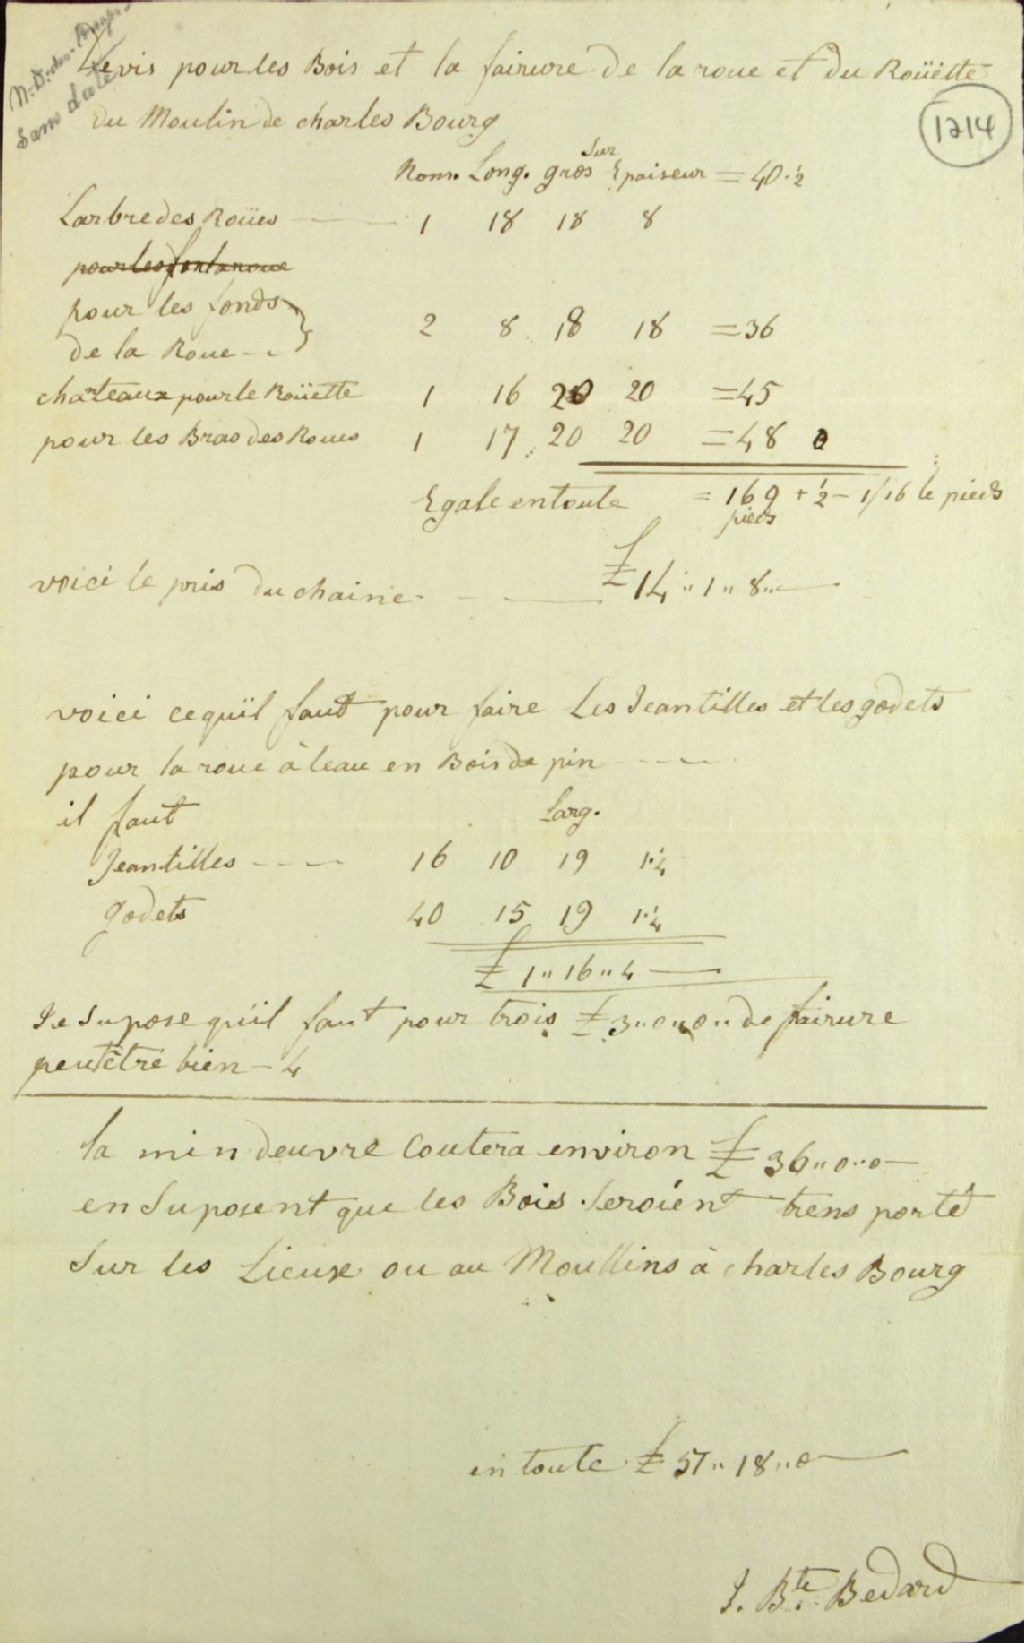 N.D. des Anges
Sans date
Devis pour les Bois et la fairure de la roue et du Roüette
du Moulin de charles Bourg
1214
Nom. Long. gros Sur Epaiseur = 40·½
Larbre des Roües 1 18 18 8
pour les fonds
de la Roue 2 8 18 18 = 36
chateaux pour le Roüette 1 16 20 20 = 45
pour les Bras des Roues 1 17 20 20 = 48 0
Egale en toute = 169 + ½ - 1/16 le pieds
pieds
voici le pris du chaine £ 14 " 1 " 8 "
voici ce quil faut pour faire Les Jeantilles et les godets
pour la roue à leau en Bois de pin
il faut Larg.
Jeantilles 16 10 19 1·¼
godets 40 15 19 1·¼
£ 1 " 16 " 4
Je supose quil faut pour trois £ 3 " 0 " 0 " de fairure
peutêtre bien - 4
la min deuvre Coutera environ £ 36 " 0 " 0
en Suposent que les Bois Seroient trens porté
Sur les Lieux ou au Moullins à charles Bourg
en toute £ 57 " 18 " 0
J. Bte Bedard